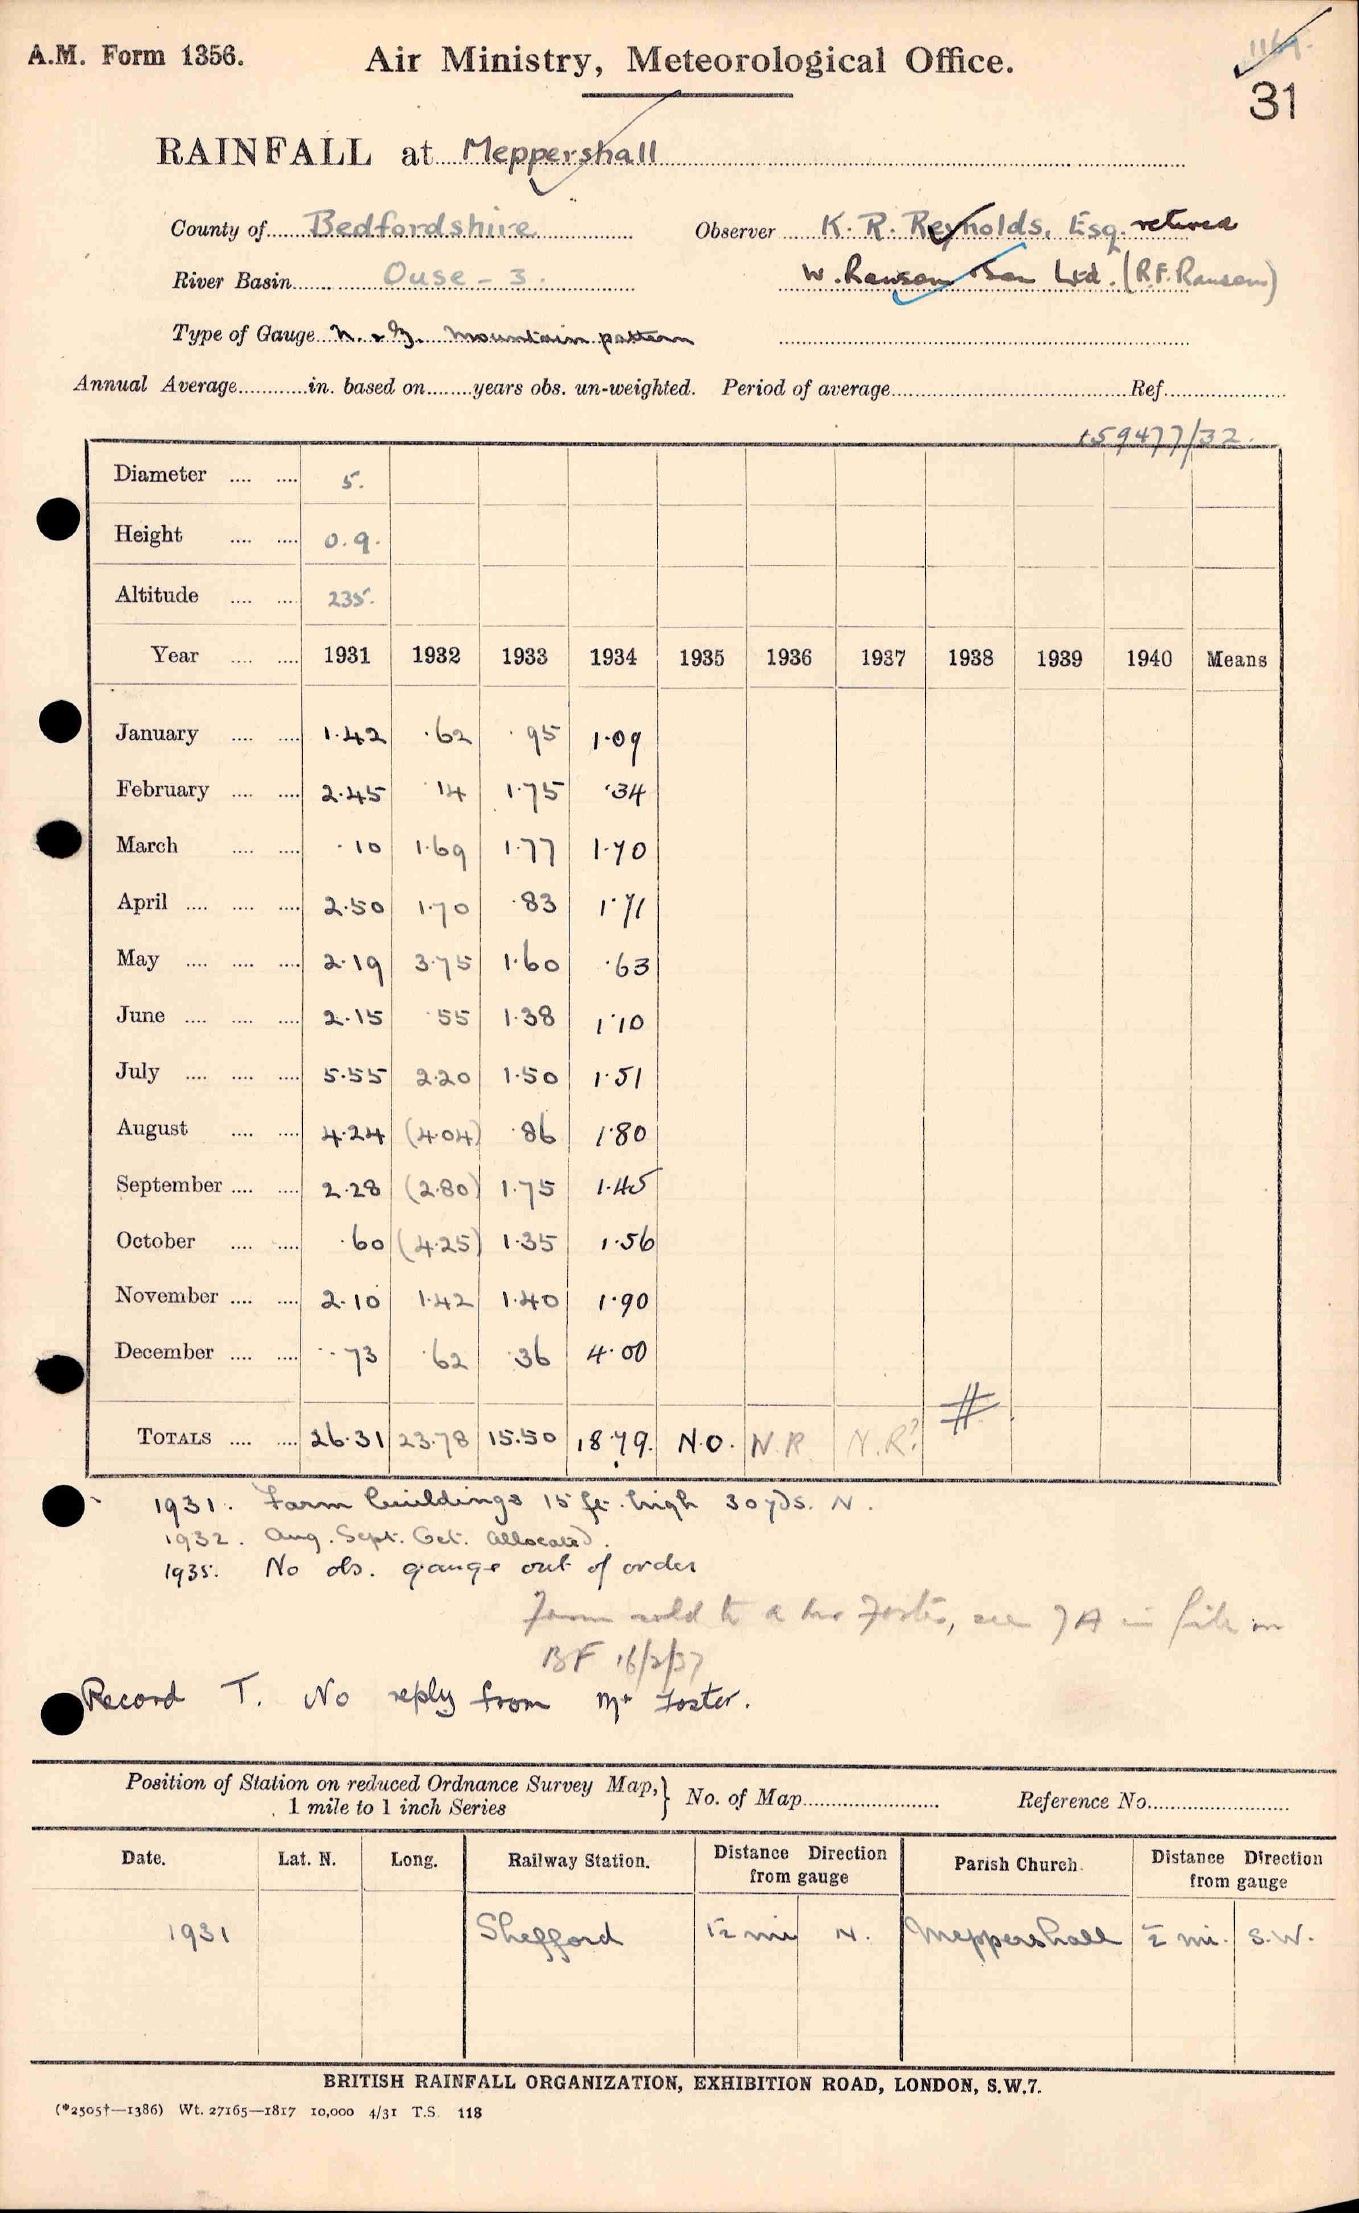 A.M. Form 1356. Air Ministry, Meteorological Office.
31
RAINFALL at Meppershall
County of Bedfordshire Observer K. R. Reynolds, Esq. retired
River Basin Ouse - 3. W. Ransom Son Ltd. (R.F. Ransom)
Type of Gauge N. & Z. Mountain pattern
Annual Average............in. based on........years obs. un-weighted. Period of average............Ref............
159477/32.
Diameter .... .... 5.
Height .... .... 0.9.
Altitude .... .... 235.
Year .... .... 1931 1932 1933 1934 1935 1936 1937 1938 1939 1940 Means
January .... .... 1.42 .62 .95 1.09
February .... .... 2.45 .14 1.75 .34
March .... .... .10 1.69 1.77 1.70
April .... .... .... 2.50 1.70 .83 1.71
May .... .... .... 2.19 3.75 1.60 .63
June .... .... .... 2.15 .55 1.38 1.10
July .... .... .... 5.55 2.20 1.50 1.51
August .... .... 4.24 (4.04) .86 1.80
September .... .... 2.28 (2.80) 1.75 1.45
October .... .... .60 (4.25) 1.35 1.56
November .... .... 2.10 1.42 1.40 1.90
December .... .... .73 .62 .36 4.00
TOTALS .... .... 26.31 23.78 15.50 18.79. N.O. N.R. N.R? #
1931. Farm buildings 15 ft. high 30 yds. N.
1932. Aug. Sept. Oct. allocated.
1935. No obs. gauge out of order
Farm sold to a Mr Foster, see 7A in file in
BF 16/2/37
Record T. No reply from Mr Foster.
Position of Station on reduced Ordnance Survey Map,} No. of Map............ Reference No............
1 mile to 1 inch Series
Date. Lat. N. Long. Railway Station. Distance Direction from gauge Parish Church. Distance Direction from gauge
1931 Shefford 1½ mi N. Meppershall ½ mi. S.W.
BRITISH RAINFALL ORGANIZATION, EXHIBITION ROAD, LONDON, S.W.7.
(*2505†—1386) Wt. 27165—1817 10,000 4/31 T.S. 118